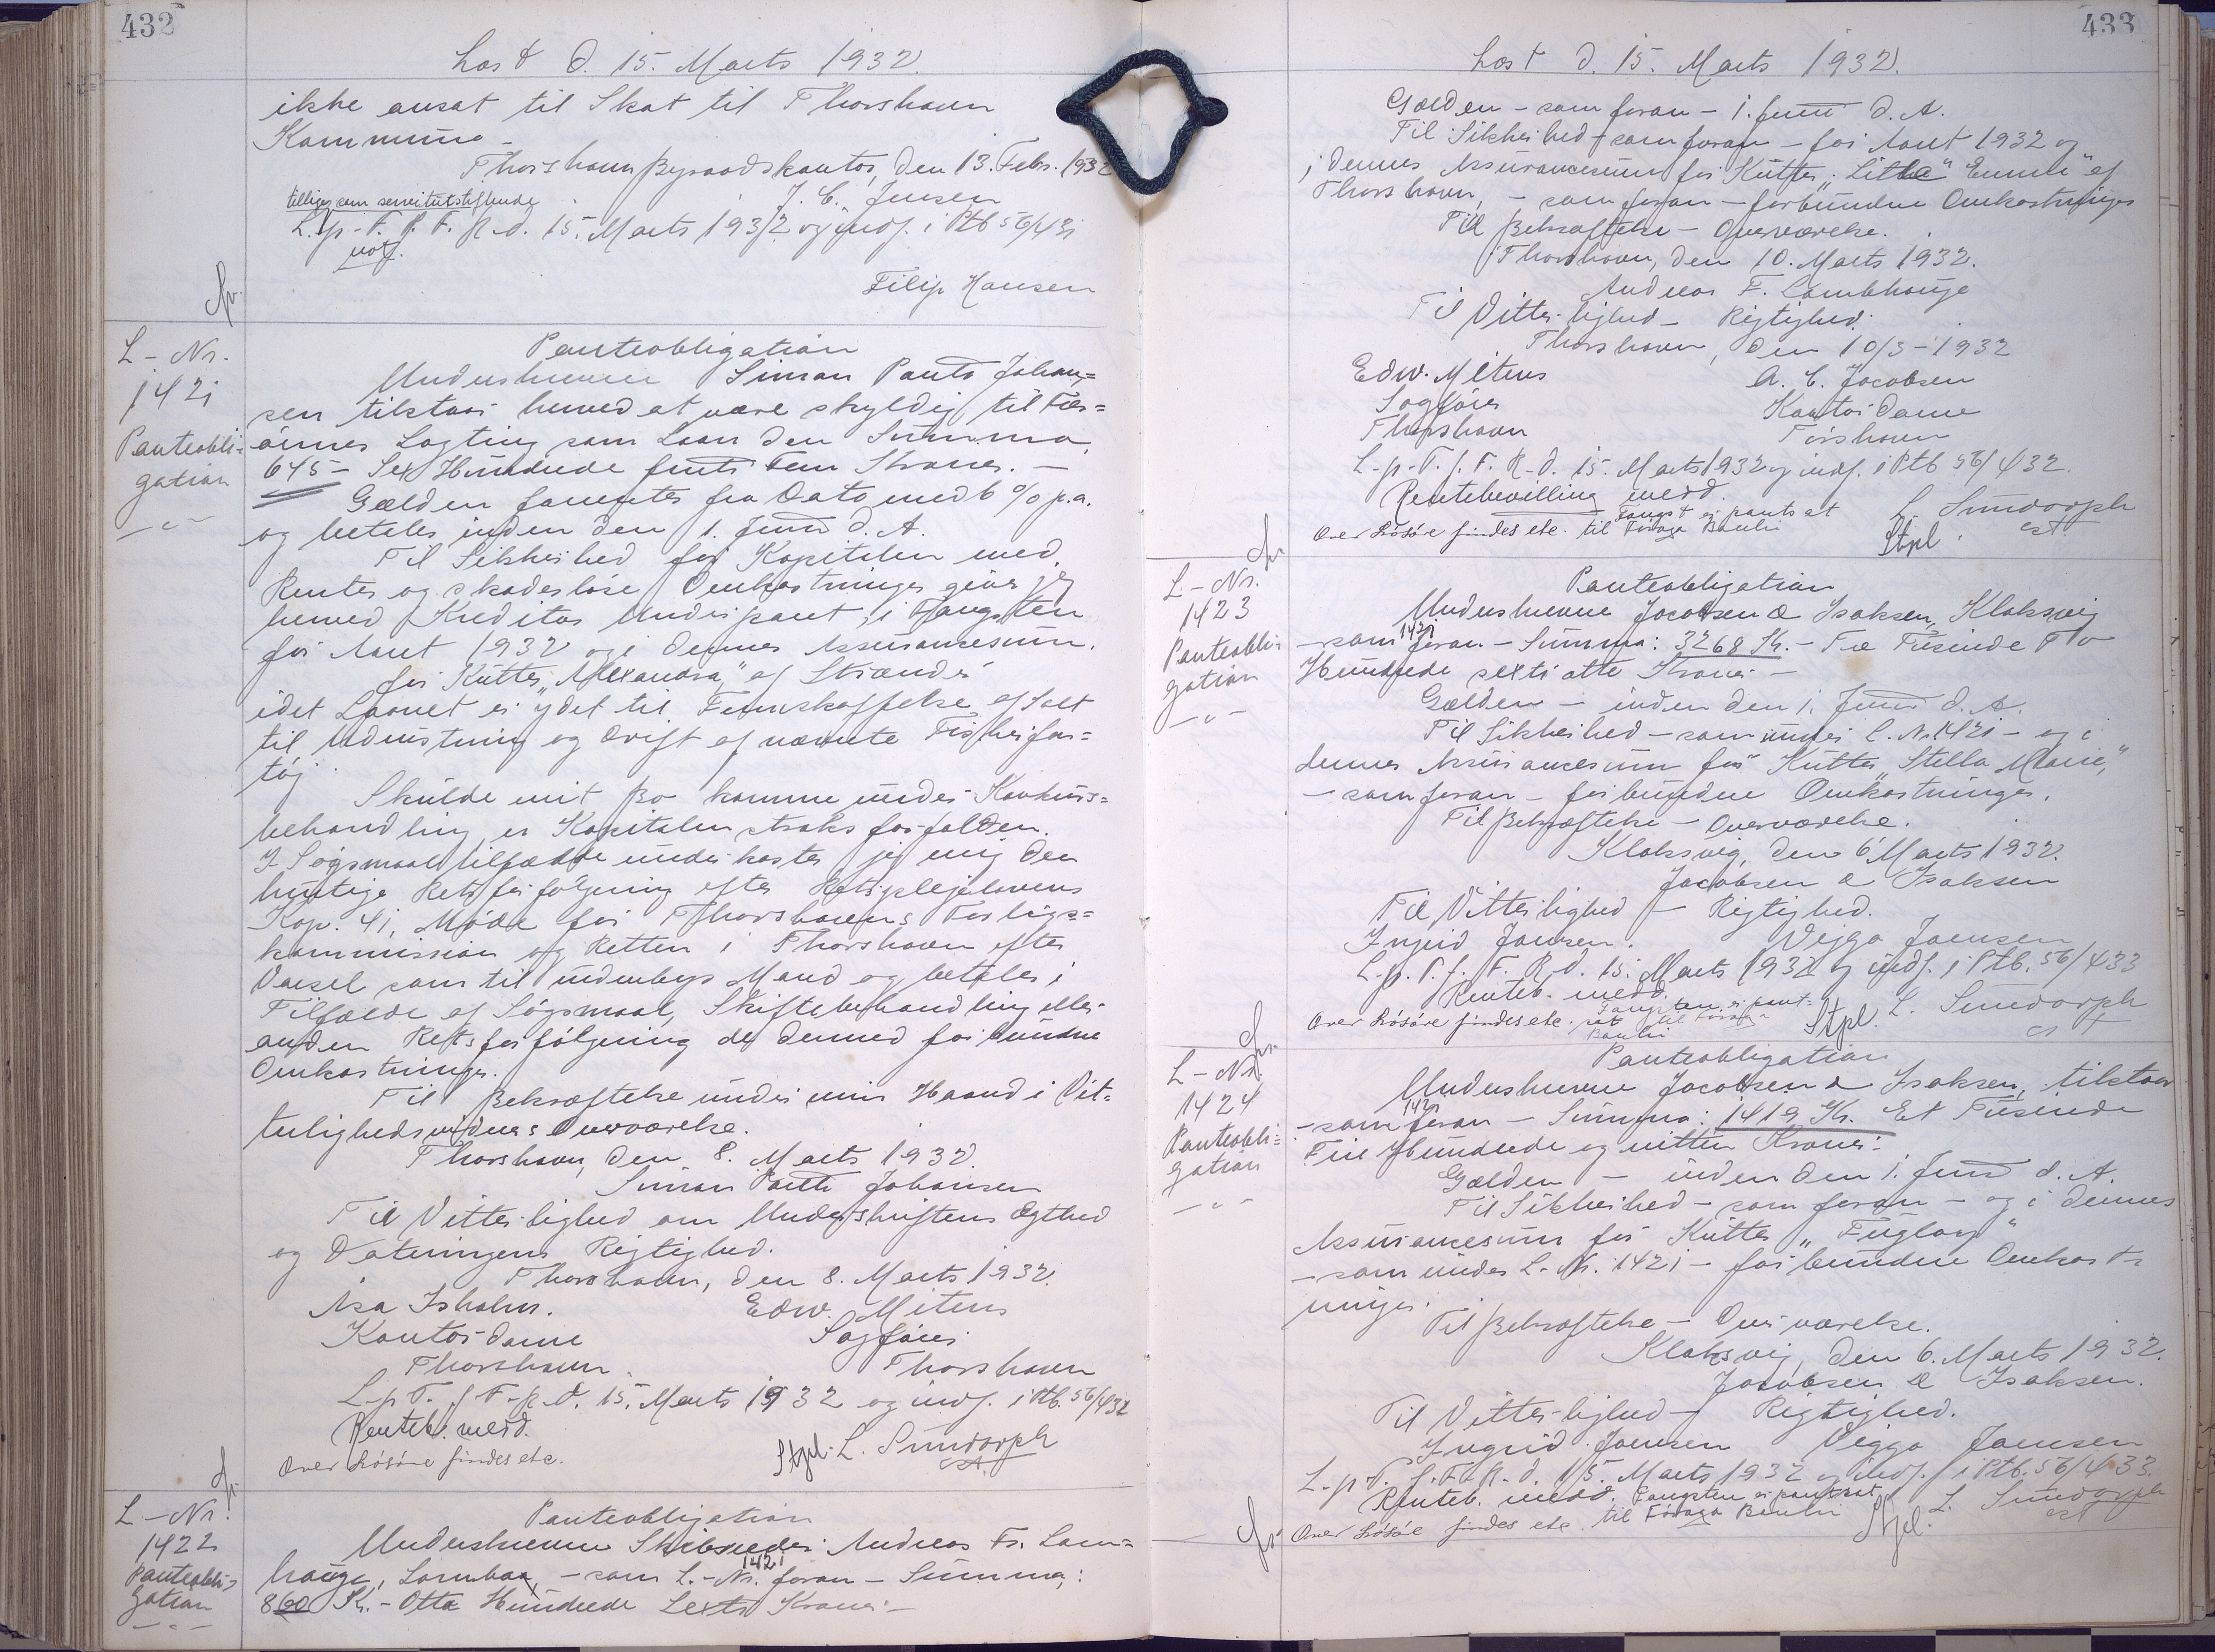 432
Læst d. 15. Marts 1932.
ikke ansat til Skat til Thorshavn
Kommune –
Thorshavn Byraadskontor, den 13. Febr. 1932
J. C. Jensen
tilligesom servitutstiftende
L. p. T. f. F. R. d. 15. Marts 1932 og indf. i Ptb 56/431
not.
Filip Hansen
L-Nr.
1421
Panteobli-
gation
Panteobligation
Undertegnede Simon Pauto Johan=
sen tilstaar herved at være skyldig til Fær=
öernes Lagting som Laan den Summa
645 – Sex Hundrede firti Fem Kroner. –
Gælden forrentes fra Dato med 6 % p.a.
og betales inden den 1. Juni d. A.
Til Sikkerhed for Kapitalen med
Renter og skadeslöse Omkostninger giver jeg
herved Kreditor Underpant i Fangsten
for Aaret 1932 og i dennes Assurancesum
for Kutter „Alexandra" af Strænder
idet Laanet er ydet til Fremskaffelse af Salt
til Udrustning og Drift af nævnte Fiskerfar=
töj.
Skulde mit Bo komme under Konkurs=
behandling, er Kapitalen straks forfalden.
I Sögsmaalstilfælde underkaster jeg mig den
hurtige Retsforfölgning efter Retsplejelovens
Kap. 41, Möde for Thorshavns Forligs=
kommission og Retten i Thorshavn efter
Varsel som til indenbys Mand og betaler i
Tilfælde af Sögsmaal, Skiftebehandling eller
anden Retsforfölgning de dermed forbundne
Omkostninger.
Til Bekræftelse under min Haand i Vit=
terlighedsvidners Overværelse.
Thorshavn, den 8. Marts 1932.
Simon Pauto Johansen
Til Vitterlighed om Underskriftens Ægthed
og Dateringens Rigtighed.
Thorshavn, den 8. Marts 1932.
Asa Isholm. Edw. Mitens
Kontordame Sagförer
Thorshavn. Thorshavn
L. p. T. f. F. R. d. 15. Marts 1932 og indf. i Ptb. 56/432
Renteb. medd.
Over Lösöre findes etc. Stpl. L. Sundorph
cst.
L-Nr.
1422
Panteobli-
gation
Panteobligation
Undertegnede Skibsreder Andreas Fr. Lam=
hauge, Lamba, – som L.-Nr. 1421 foran – Summa:
860 Kr. – Otte Hundrede Sexti Kroner –
433
Læst d. 15. Marts 1932.
Gælden – som foran – 1. Juni d. A.
Til Sikkerhed – som foran – for Aaret 1932 og
i dennes Assurancesum for Kutter „Little Emma" af
Thorshavn, – som foran – forbundne Omkostninger
Til Bekræftelse – Overværelse.
Thorshavn, den 10. Marts 1932.
Andreas F. Lambhauge
Til Vitterlighed – Rigtighed.
Thorshavn, den 10/3-1932
Edw. Mitens A. C. Jacobsen
Sagförer Kontordame
Thorshavn Tórshavn
L. p. T. f. F. R. d. 15. Marts 1932 og indf. i Ptb 56/432.
Rentebevilling medd.
Over Lösöre findes etc. Fangst er pantsat til Föroya Banki
L. Sundorph
cst
Stpl.
L-Nr.
1423
Panteobli-
gation
Panteobligation
Undertegnede Jacobsen & Isaksen, Klaksvig
– som 1421 foran – Summa: 3268 Kr. – Tre Tusinde To
Hundrede sexti otte Kroner –
Gælden – inden den 1. Juni d. A.
Til Sikkerhed – som under L. Nr. 1421 – og i
dennes Assurancesum for Kutter „Stella Marie",
– som foran – forbundne Omkostninger.
Til Bekræftelse – Overværelse.
Klaksvig, den 6 Marts 1932.
Jacobsen & Isaksen
Til Vitterlighed – Rigtighed.
Ingrid Joensen. Viggo Joensen
L. p. T. f. F. R. d. 15. Marts 1932 og indf. i Ptb. 56/433
Renteb. medd.
Over Lösöre findes etc. Fangsten er pant=
sat til Föroya
Banki
Stpl. L. Sundorph
cst
L-Nr.
1424
Panteobli=
gation
Panteobligation
Undertegnede Jacobsen & Isaksen, tilstaar
– som 1421 foran – Summa: 1419 Kr. Et Tusinde
Fire Hundrede og nitten Kroner.
Gælden – inden den 1. Juni d. A.
Til Sikkerhed – som foran – og i dennes
Assurancesum for Kutter „Fugloy"
– som under L.-Nr. 1421 – forbundne Omkost-
ninger.
Til Bekræftelse – Overværelse.
Klaksvig, den 6. Marts 1932.
Jacobsen & Isaksen.
Til Vitterlighed – Rigtighed.
Ingrid Joensen Viggo Joensen
L. p. T. f. F. R. d. 15. Marts 1932 og indf. i Ptb. 56/433.
Renteb. medd. Fangsten er pantsat
Over Lösöre findes etc. til Föroya Banki
L. Sundorph
cst
Stpl.